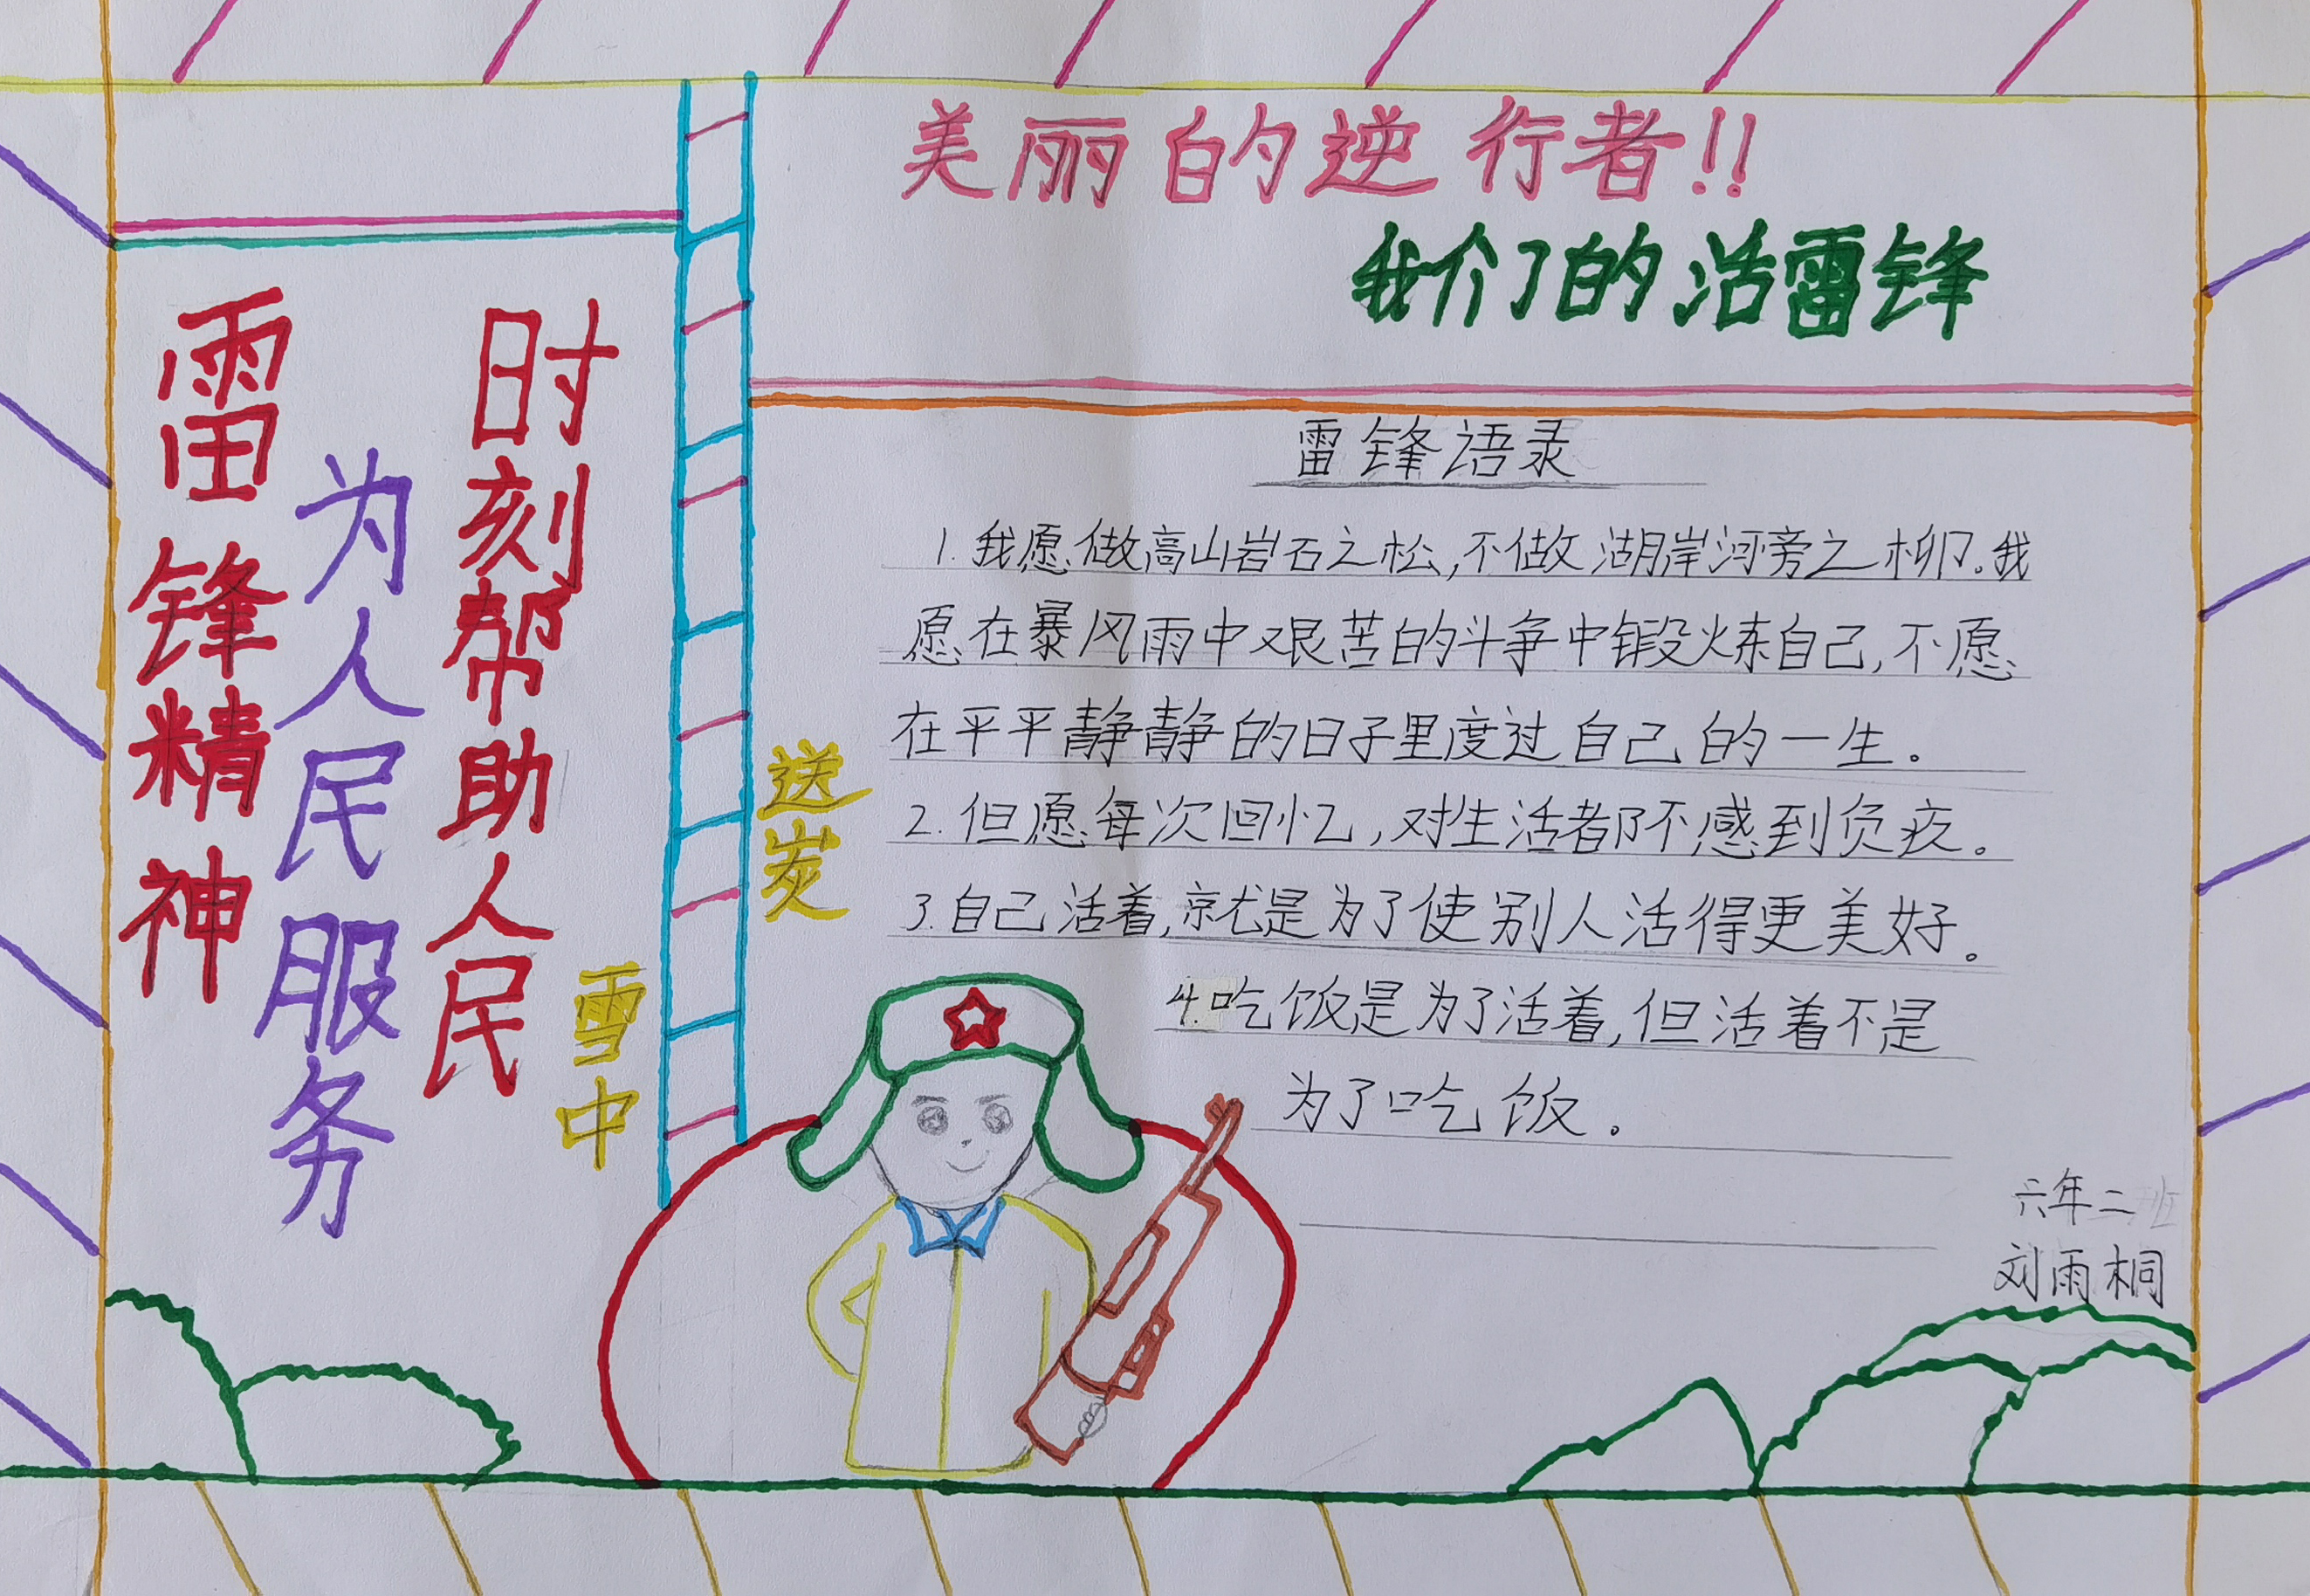 美丽的逆行者!!
我们的活雷锋
雷锋精神
为人民服务
时刻帮助人民
雪中
送炭
雷锋语录
1.我愿做高山岩石之松,不做湖岸河旁之柳。我
愿在暴风雨中艰苦的斗争中锻炼自己,不愿
在平平静静的日子里度过自己的一生。
2.但愿每次回忆,对生活都不感到负疚。
3.自己活着,就是为了使别人活得更美好。
4.吃饭是为了活着,但活着不是
为了吃饭。
六年二班
刘雨桐